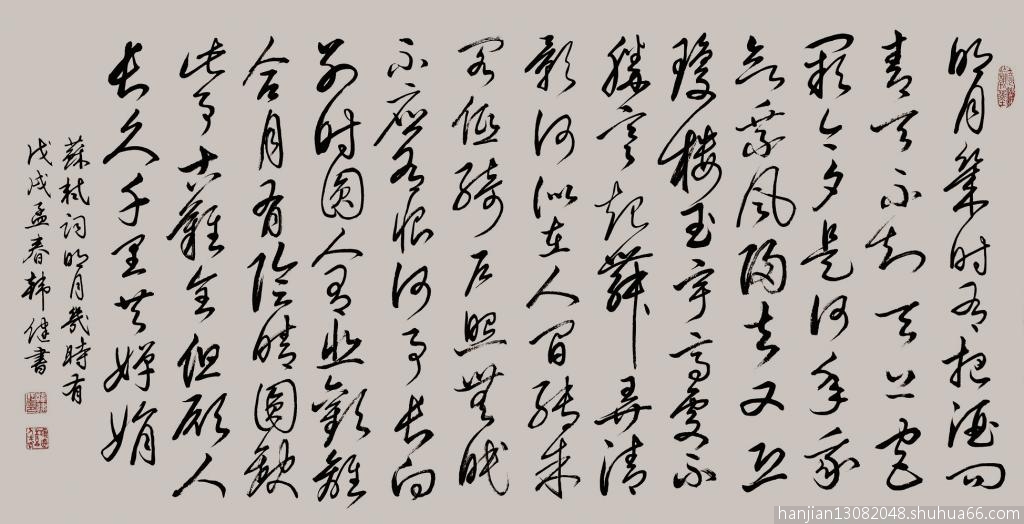 明月幾时有把酒问
青天不知天上宫
阙今夕是何年我
欲乘风歸去又恐
瓊樓玉宇高處不
勝寒起舞弄清
影何似在人间轉朱
阁低綺户照無眠
不應有恨何事长向
别时圆人有悲歡離
合月有陰晴圆缺
此事古難全但願人
长久千里共嬋娟
蘇軾词明月幾時有
戊戌孟春韩健書
hanjian13082048.shuhua66.com